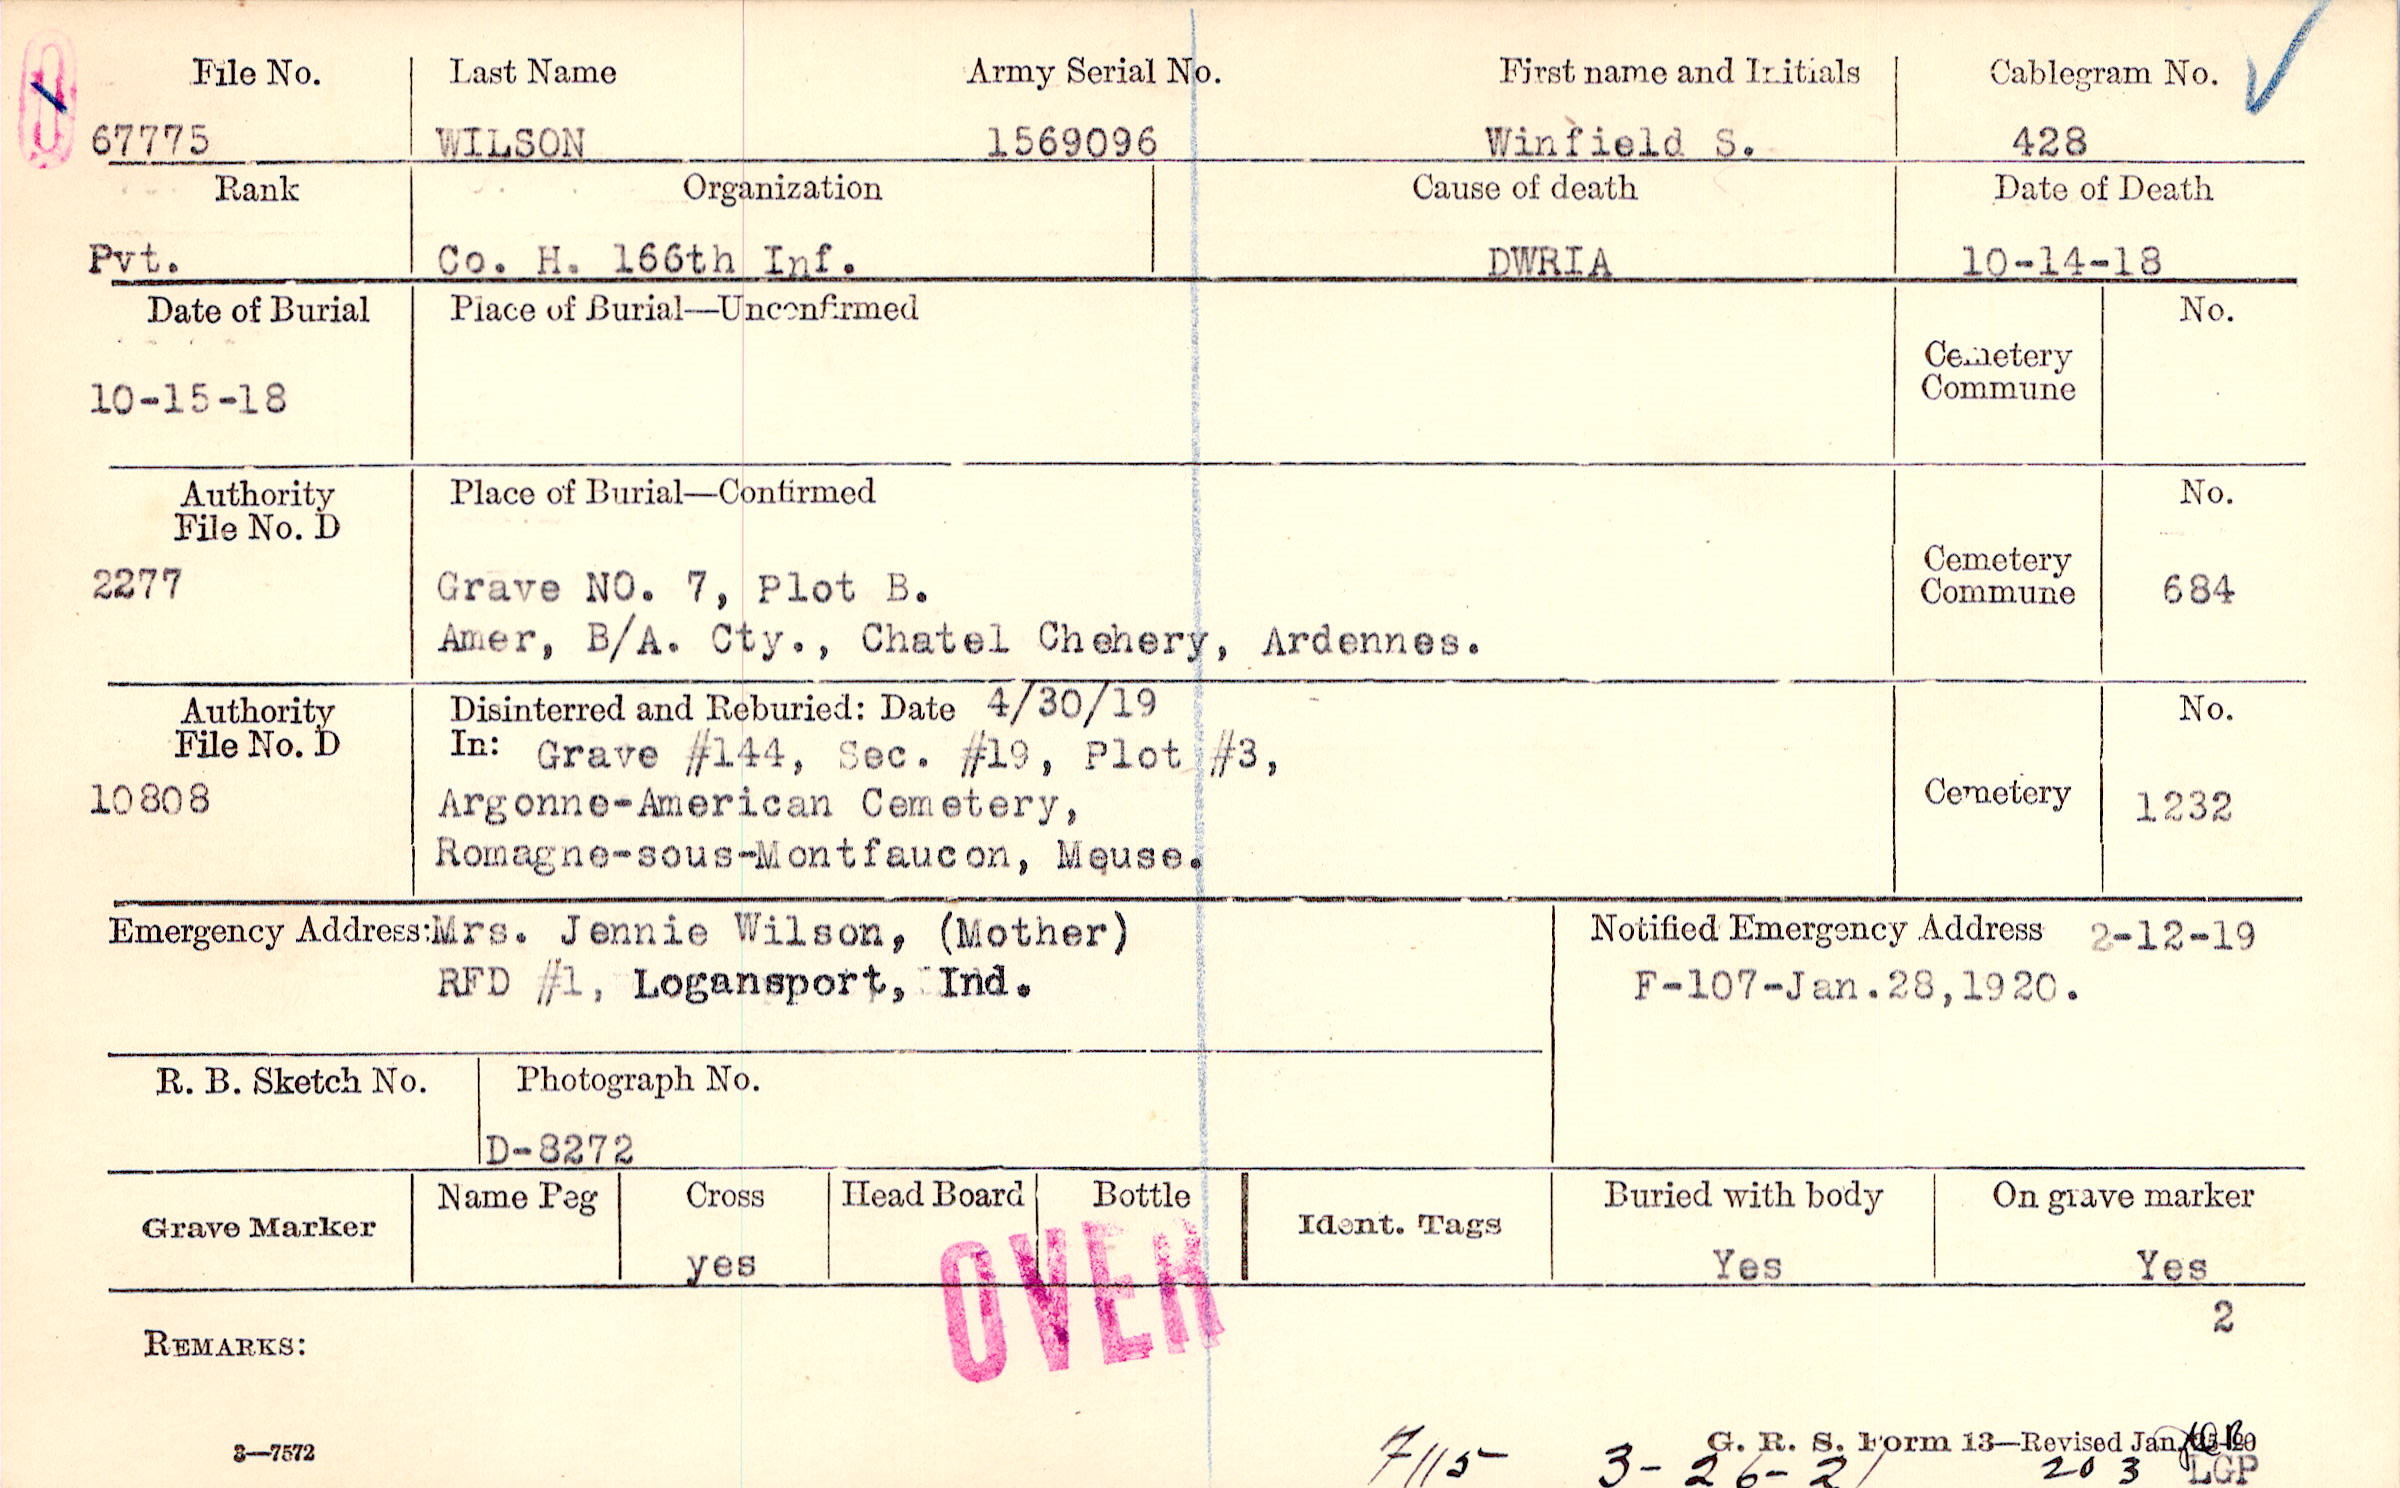 File No. Last Name Army Serial No. First name and Initials Cablegram No.
67775 WILSON 1569096 Winfield S. 428
Rank Organization Cause of death Date of Death
Pvt. Co. H. 166th Inf. DWRIA 10-14-18
Date of Burial Place of Burial—Unconfirmed No.
Cemetery
Commune
10-15-18
Authority Place of Burial—Confirmed No.
File No. D
Cemetery
Commune
2277 Grave NO. 7, Plot B. 684
Amer, B/A. Cty., Chatel Chehery, Ardennes.
Authority Disinterred and Reburied: Date 4/30/19 No.
File No. D In: Grave #144, Sec. #19, Plot #3,
10808 Argonne-American Cemetery, Cemetery 1232
Romagne-sous-Montfaucon, Meuse.
Emergency Address: Mrs. Jennie Wilson, (Mother) Notified Emergency Address 2-12-19
RFD #1, Logansport, Ind. F-107-Jan.28,1920.
R. B. Sketch No. Photograph No.
D-8272
Grave Marker Name Peg Cross Head Board Bottle Ident. Tags Buried with body On grave marker
yes Yes Yes
OVER
2
REMARKS:
3—7572 G. R. S. Form 13—Revised Jan.
7/15 3-26-21 203 LGP